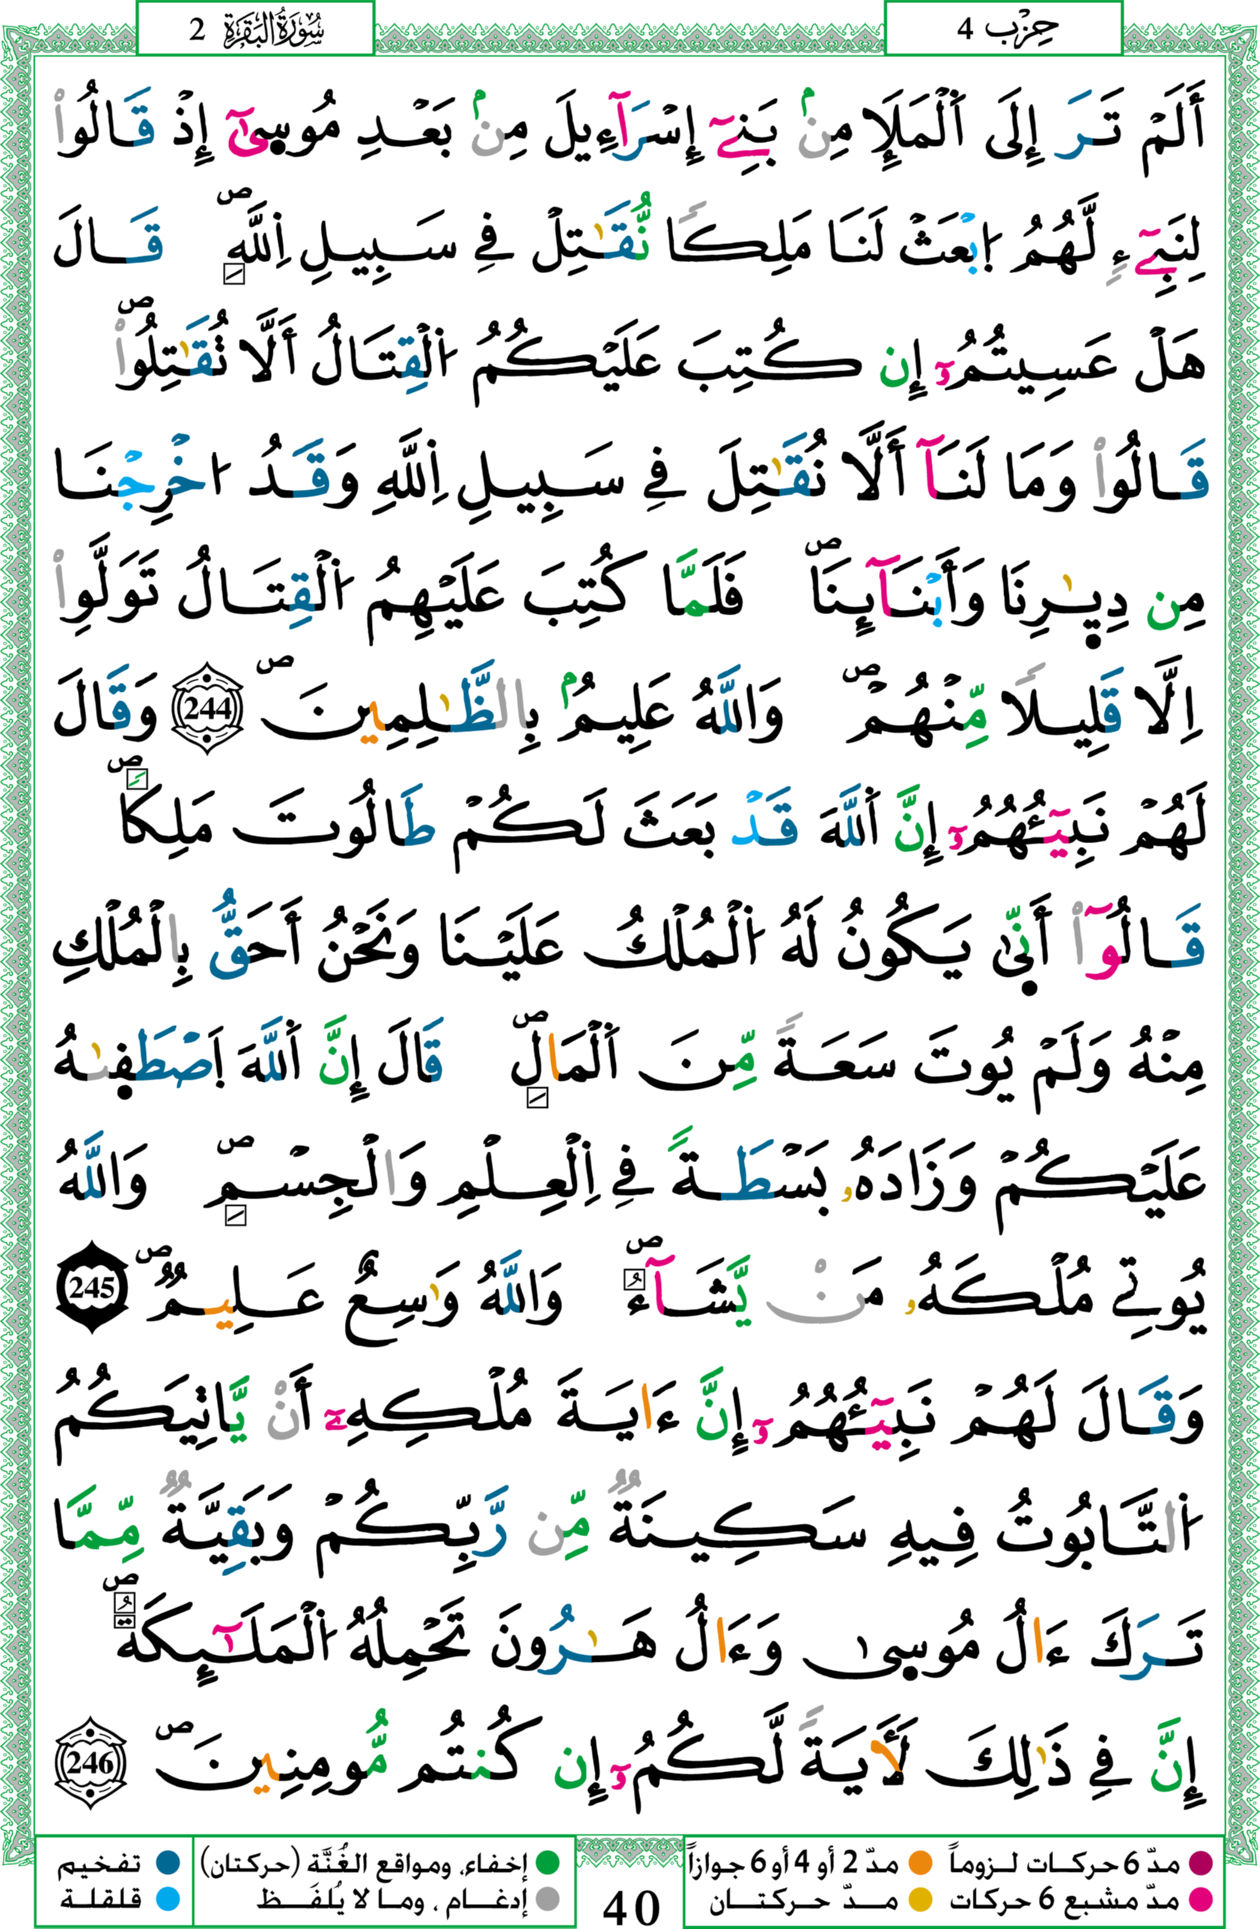 حِزْب 4
سُورَةُ الْبَقَرَةِ 2
أَلَمْ تَرَ إِلَى اَ۬لْمَلَإِ مِنۢ بَنِےٓ إِسْرَآءِيلَ مِنۢ بَعْدِ مُوس۪ىٰٓ إِذْ قَالُواْ
لِنَبِےٓءٖ لَّهُمُ اُ۪بْعَثْ لَنَا مَلِكاٗ نُّقَٰتِلْ فِے سَبِيلِ اِ۬للَّهِۖ قَالَ
هَلْ عَسِيتُمُۥٓ إِن كُتِبَ عَلَيْكُمُ اُ۬لْقِتَالُ أَلَّا تُقَٰتِلُواْۖ
قَالُواْ وَمَا لَنَآ أَلَّا نُقَٰتِلَ فِے سَبِيلِ اِ۬للَّهِ وَقَدُ اخْرِجْنَا
مِن دِيٰ۪رِنَا وَأَبْنَآئِنَاۖ فَلَمَّا كُتِبَ عَلَيْهِمُ اُ۬لْقِتَالُ تَوَلَّوِاْ
اِلَّا قَلِيلاٗ مِّنْهُمْۖ وَاللَّهُ عَلِيمُۢ بِالظَّٰلِمِينَۖ 244 وَقَالَ
لَهُمْ نَبِيٓـُٔهُمُۥٓ إِنَّ اَ۬للَّهَ قَدْ بَعَثَ لَكُمْ طَالُوتَ مَلِكاٗۖ
قَالُوٓاْ أَنّ۪ىٰ يَكُونُ لَهُ اُ۬لْمُلْكُ عَلَيْنَا وَنَحْنُ أَحَقُّ بِالْمُلْكِ
مِنْهُ وَلَمْ يُوتَ سَعَةٗ مِّنَ اَ۬لْمَالِۖ قَالَ إِنَّ اَ۬للَّهَ اَ۪صْطَف۪ىٰهُ
عَلَيْكُمْ وَزَادَهُۥ بَسْطَةٗ فِے اِ۬لْعِلْمِ وَالْجِسْمِۖ وَاللَّهُ
يُوتِے مُلْكَهُۥ مَنْ يَّشَآءُۖ وَاللَّهُ وَٰسِعٌ عَلِيمٞۖ 245
وَقَالَ لَهُمْ نَبِيٓـُٔهُمُۥٓ إِنَّ ءَايَةَ مُلْكِهِۦٓ أَنْ يَّاتِيَكُمُ
اُ۬لتَّابُوتُ فِيهِ سَكِينَةٞ مِّن رَّبِّكُمْ وَبَقِيَّةٞ مِّمَّا
تَرَكَ ءَالُ مُوس۪ىٰ وَءَالُ هَٰرُونَ تَحْمِلُهُ اُ۬لْمَلَٰٓئِكَةُۖ
إِنَّ فِے ذَٰلِكَ لَأٓيَةٗ لَّكُمُۥٓ إِن كُنتُم مُّومِنِينَۖ 246
مدّ 6 حركات لـزوماً مدّ 2 أو 4 أو 6 جوازاً إخفاء، ومواقع الغُنَّة (حركتان) تفخيم
مدّ مشبع 6 حركات مدّ حركتان إدغام ، وما لا يُلفَظ قلقلة
40